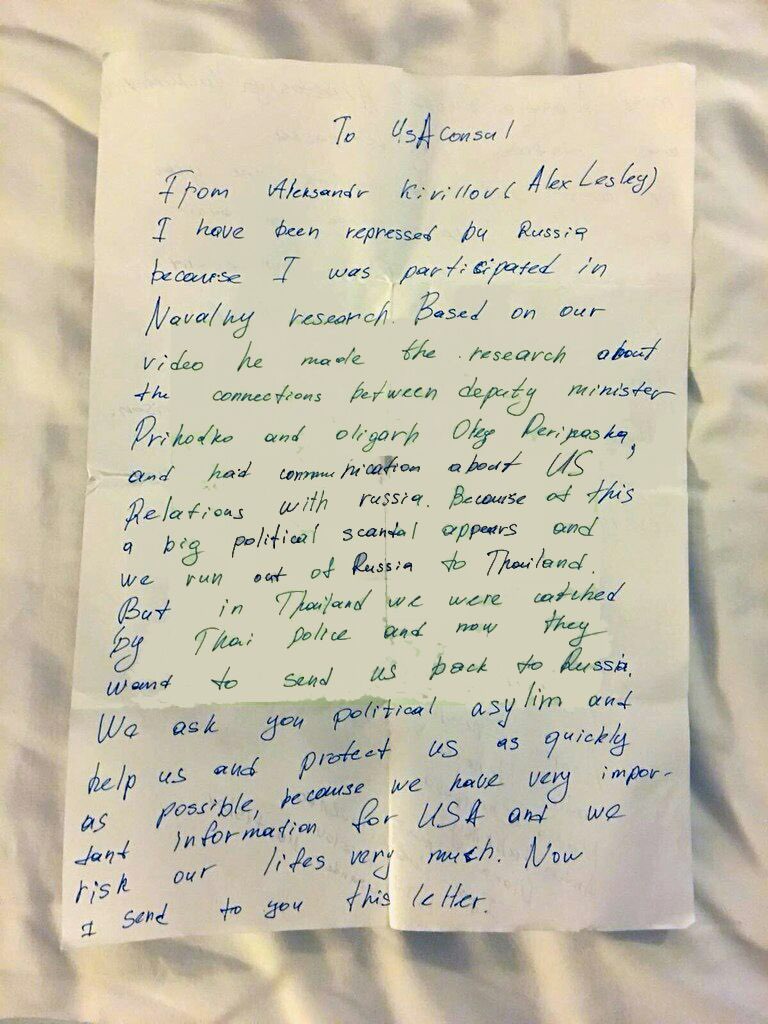 To USA consul
From Aleksandr Kirillov (Alex Lesley)
I have been repressed by Russia
because I was participated in
Navalny research. Based on our
video he made the research about
the connections between deputy minister
Prihodko and oligarh Oleg Deripaska,
and had communication about US
Relations with russia. Because of this
a big political scandal appears and
we run out of Russia to Thailand.
But in Thailand we were catched
by Thai police and now they
want to send us back to Russia.
We ask you political asylim and
help us and protect us as quickly
as possible, because we have very impor-
tant information for USA and we
risk our lifes very much. Now
I send to you this letter.